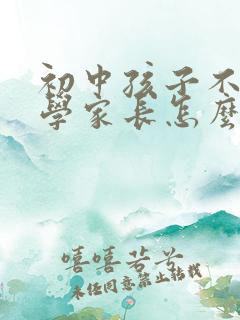 初中孩子不
學家長怎麼
嘻嘻芸芸
未任同意禁止转载